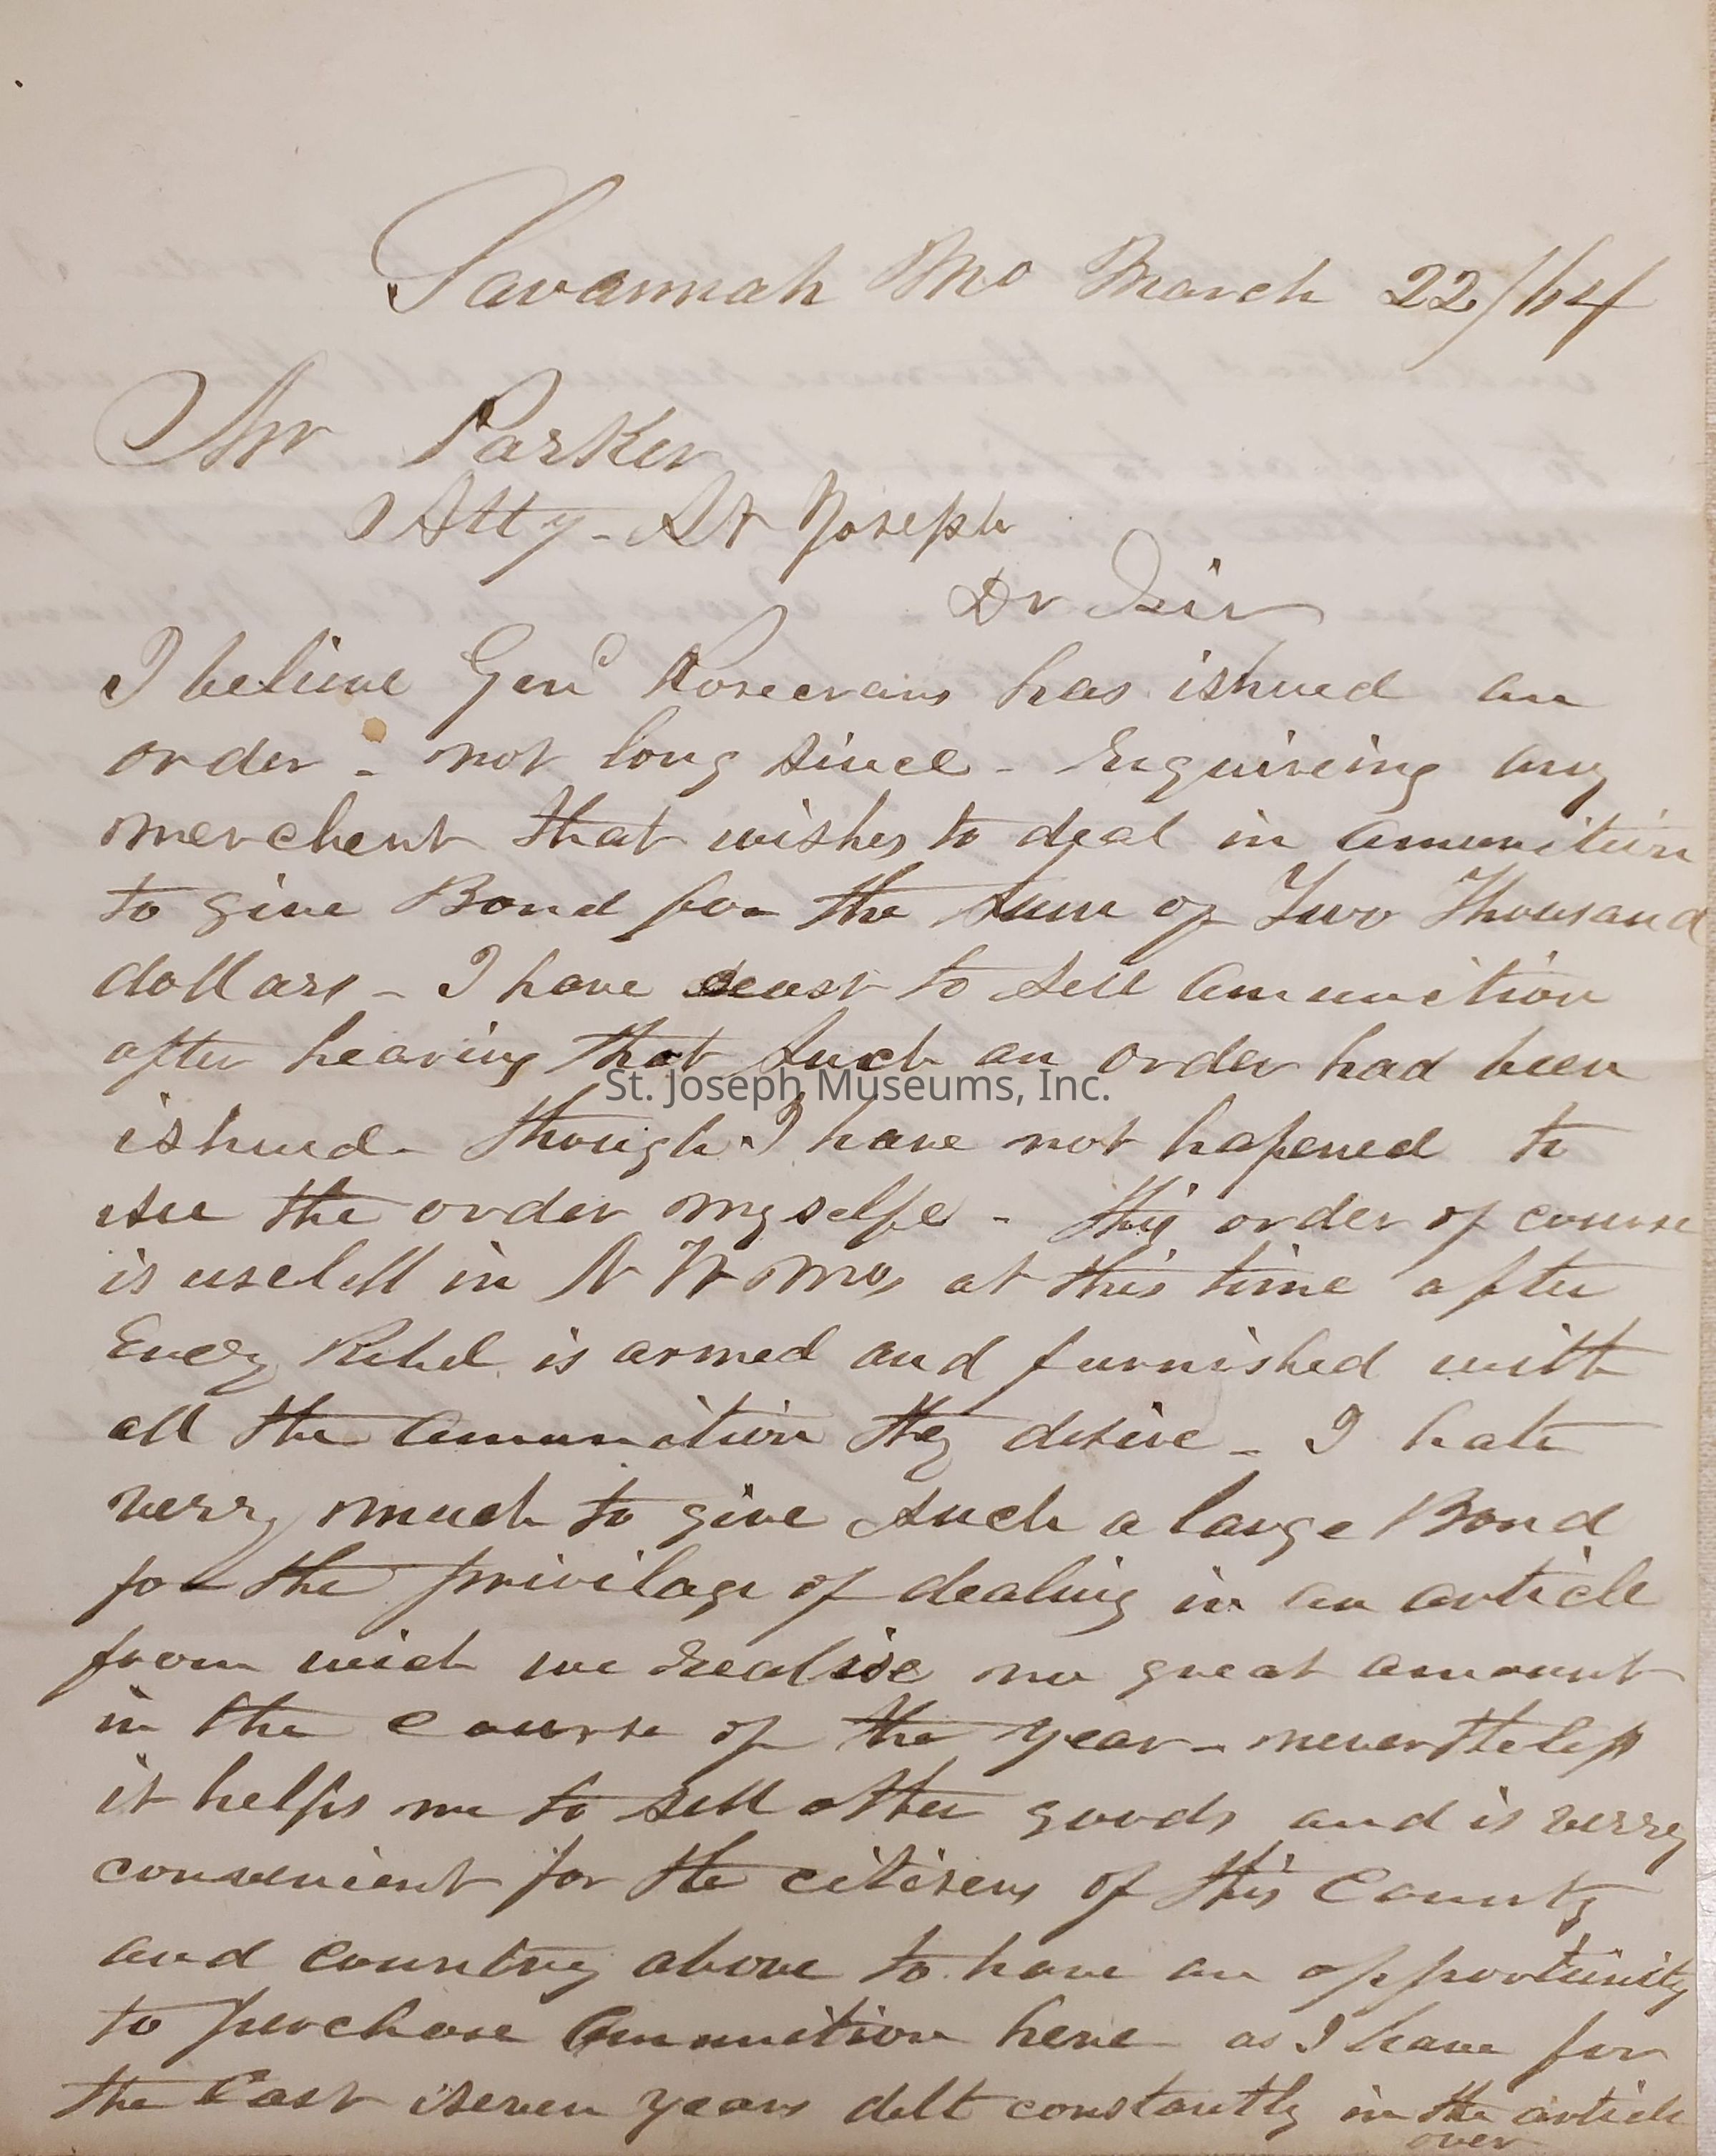 Savannah Mo March 22/64
Mr Parker
Atty - St Joseph
Dr Sir
I believe Genl Rosecrans has ishued an
order - not long since - Requireing any
merchent that wishes to deal in amunition
to give Bond for the sum of Two Thousand
dollars - I have ceast to sell amunition
after hearing that such an order had been
ishued - though I have not hapened to
see the order myselfe - this order of course
is uselell in N W Mo, at this time after
Every Rebel is armed and furnished with
all the amunition they desire - I hate
verry much to give such a large Bond
for the privilage of dealing in an article
from wich we realise no great amount
in the course of the year - nevertheless
it helps me to sell other goods and is verry
convenient for the citisens of this County
and country above to have an opportunity
to purchase Amunition here as I have for
the last seven years delt constantly in the article
over
St. Joseph Museums, Inc.